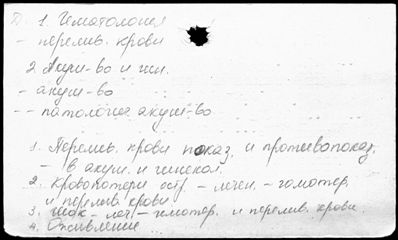 Д. 1. Гематология
- перелив. крови
2. Акуш-во и гин.
- акуш-во
- - патология акуш-во
1. Перелив. крови показ. и противопоказ.
- в акуш. и гинекол.
2. Кровопотери остр. - лечен. - гемотер.
и перелив. крови.
3. Шок - леч. - гемотер. и перелив. крови
4. Оживление